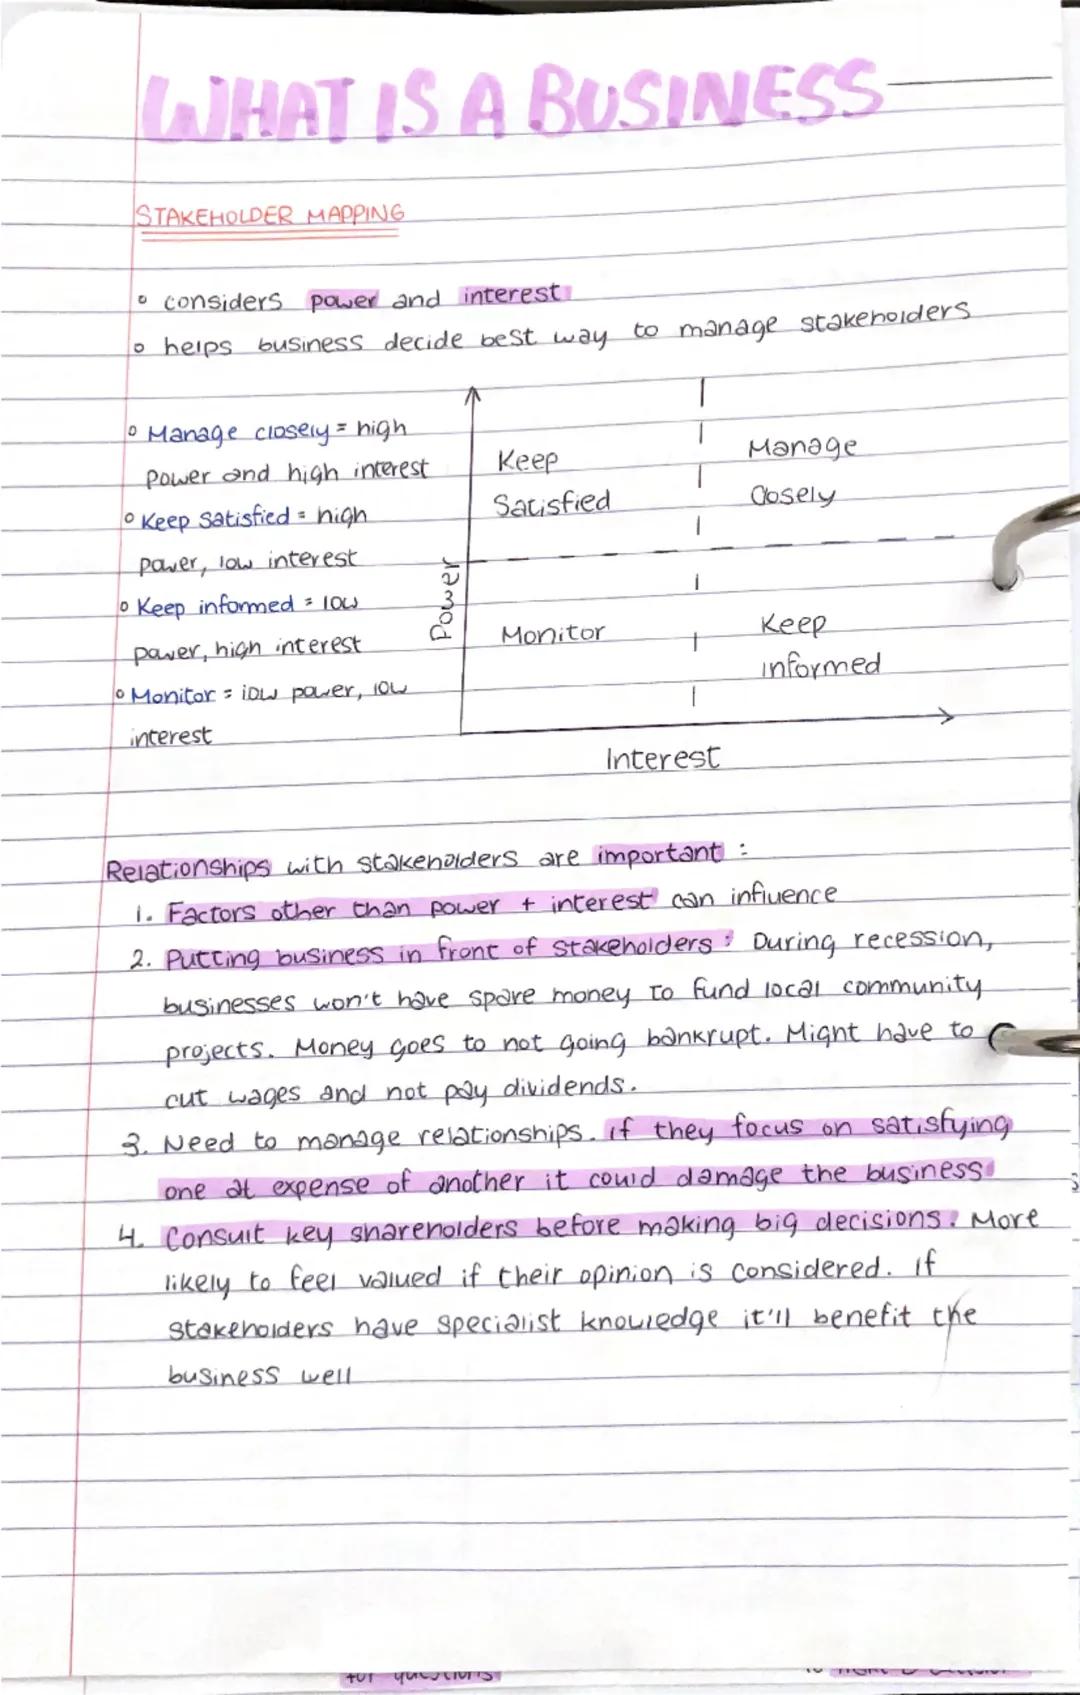 WHAT IS A BUSINESS
STAKEHOLDER MAPPING
° considers power and interest
° helps business decide best way to manage stakeholders
° Manage closely = high
power and high interest
° Keep satisfied = high
power, low interest
° Keep informed = low
power, high interest
° Monitor = low power, low
interest
Power
Keep
Satisfied
Manage
Closely
Monitor
Keep
informed
Interest
Relationships with stakeholders are important :
1. Factors other than power + interest can influence
2. Putting business in front of stakeholders : During recession,
businesses won't have spare money to fund local community
projects. Money goes to not going bankrupt. Might have to
cut wages and not pay dividends.
3. Need to manage relationships. if they focus on satisfying
one at expense of another it could damage the business
4. Consult key shareholders before making big decisions : More
likely to feel valued if their opinion is considered. if
stakeholders have specialist knowledge it'll benefit the
business well
for questions